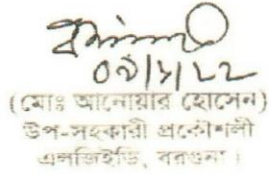 ০৯/১/২২
(মোঃ আনোয়ার হোসেন)
উপ-সহকারী প্রকৌশলী
এলজিইডি, বরগুনা।